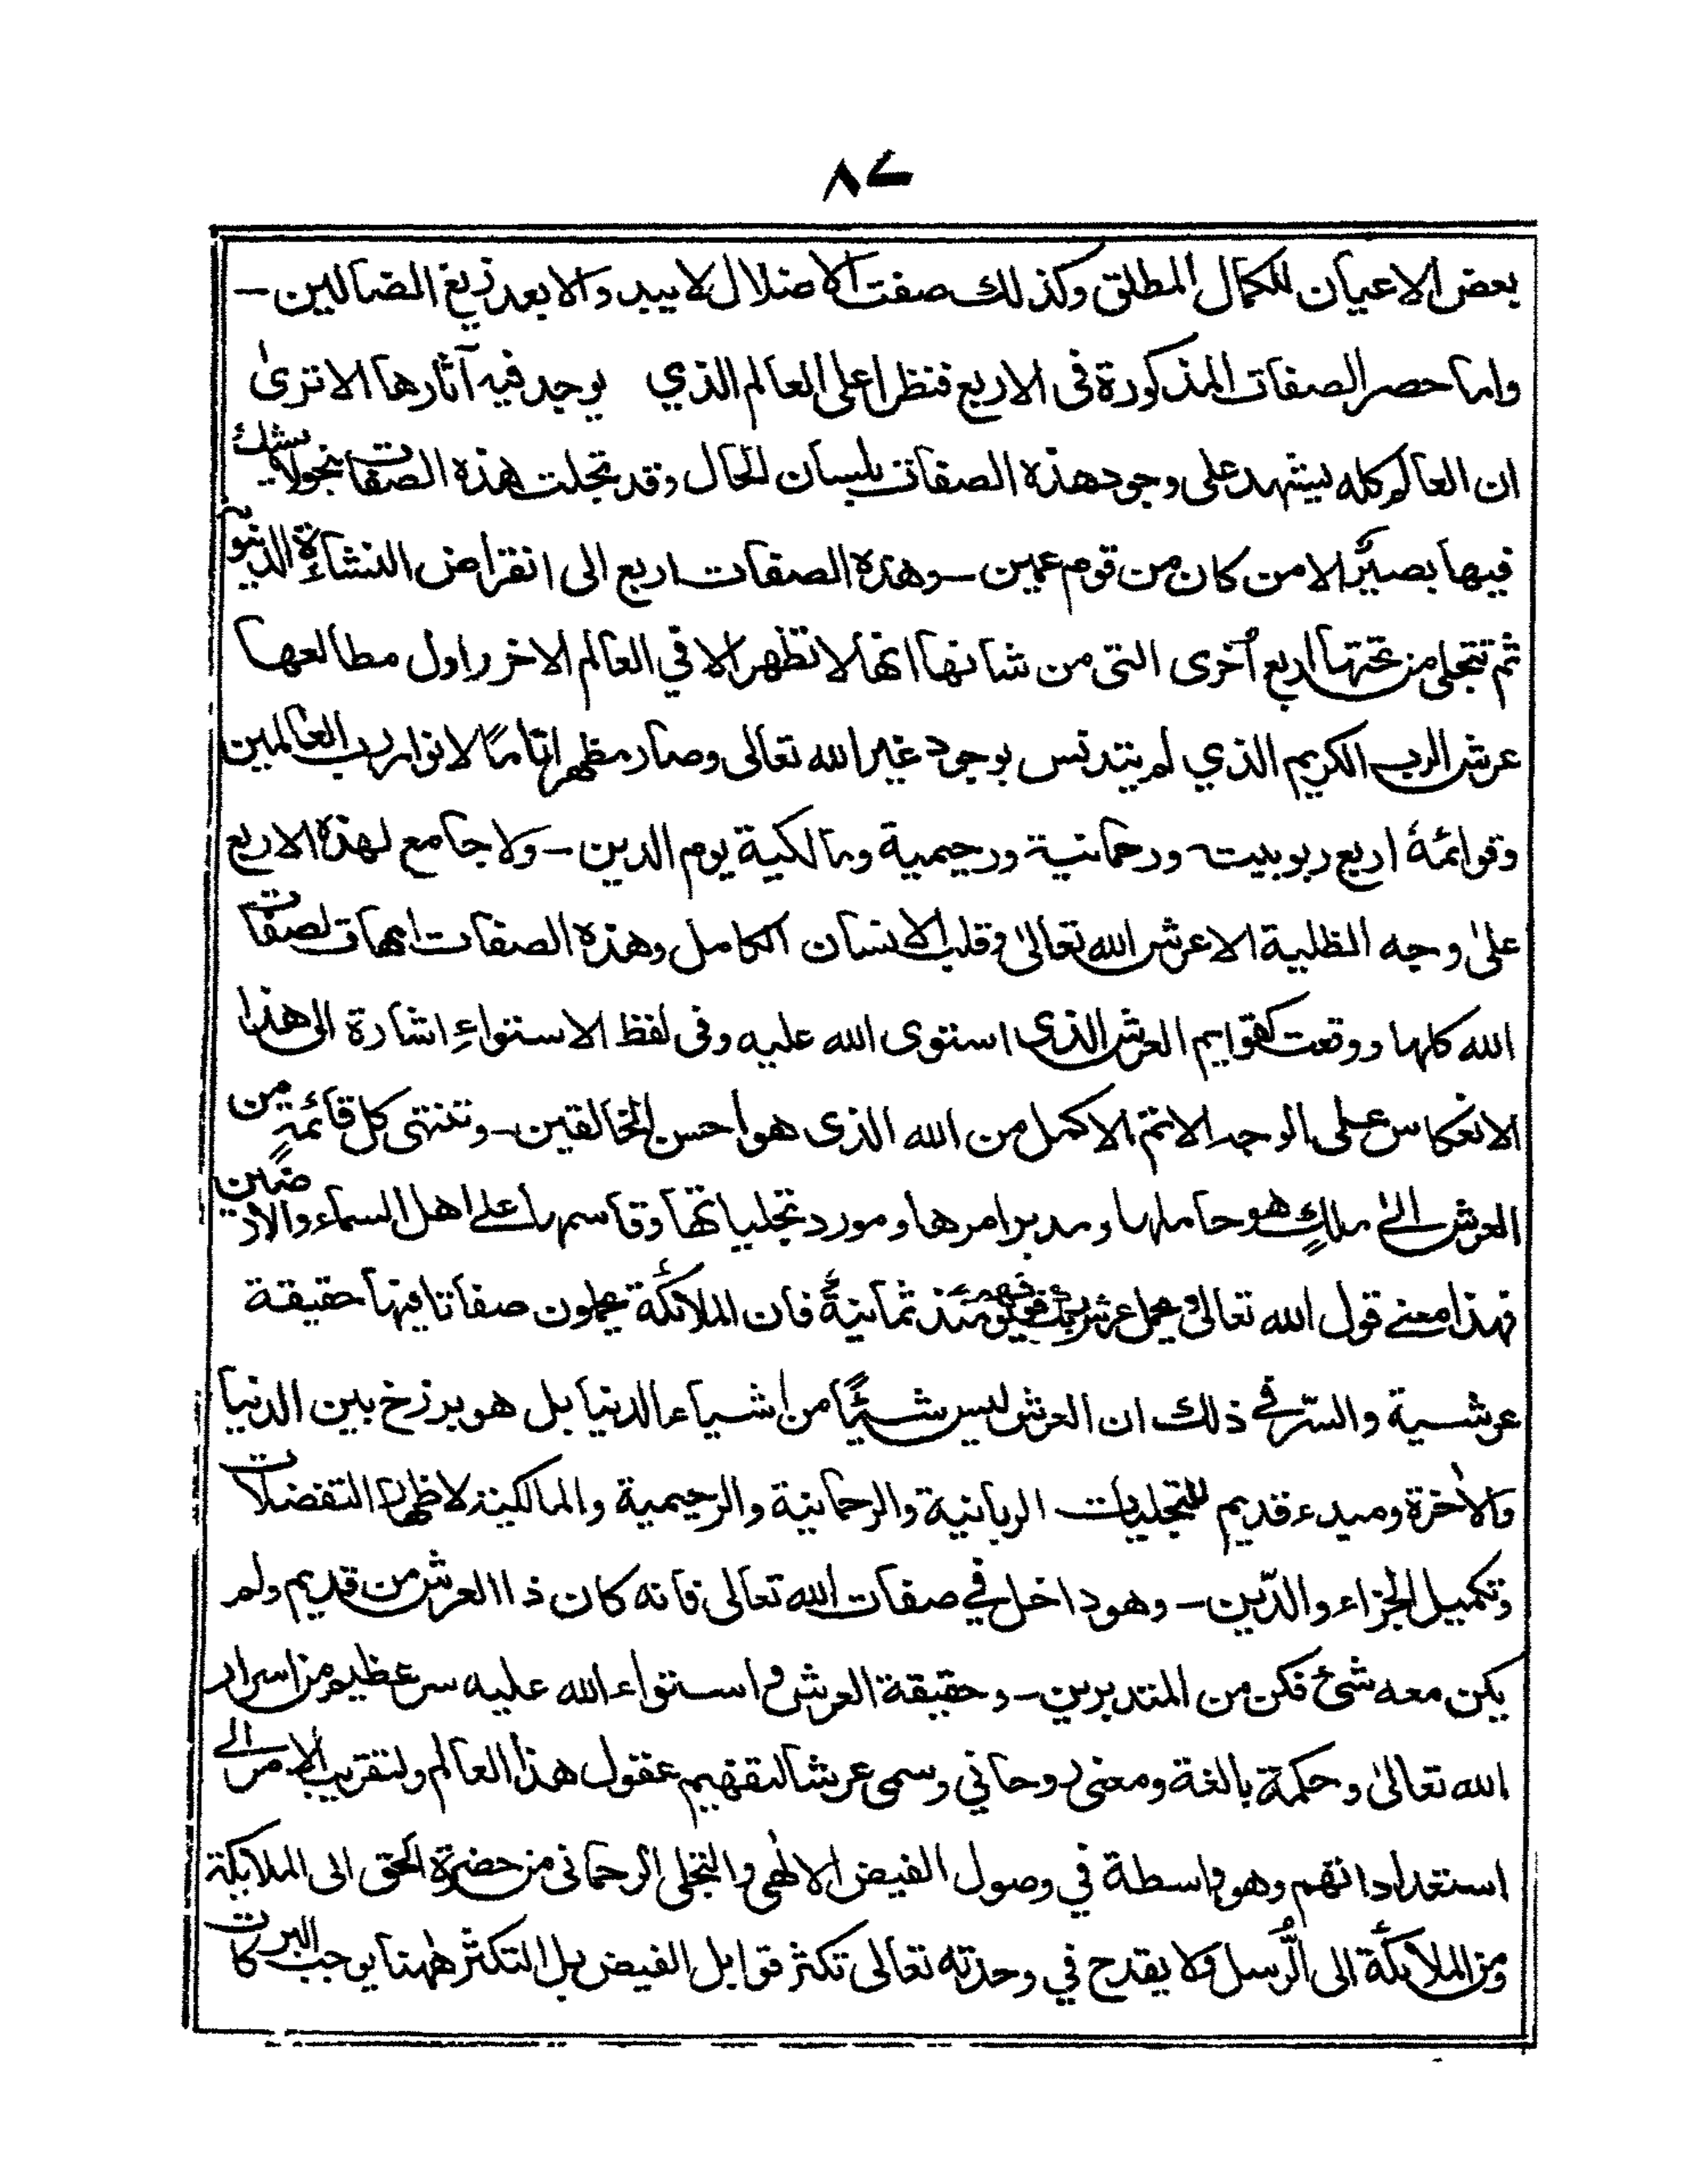 ۸۷
بعض الاعيان للكمال المطلق وكذلك صفت الاضلال لا يبد والا بعد زيغ الضالين -
واما حصر الصفات المذكورة فى الاربع فنظرا على العالم الذي يوجد فيه آثارها الا ترىٰ
ان العالم كله ليشهد على وجود هذه الصفات بلسان الحال وقد تجلت هذه الصفات بنحو لا يشك
فيها بصير الا من كان من قوم عمين - وهذه الصفات اربع الى انقراض النشاءة الدنيوية
ثم تتجلى من تحتها اربع أخرى التى من شانها انها لا تظهر الا في العالم الاخر واول مطالعها
عرش الرب الكريم الذي لم يتدنس بوجود غير الله تعالى وصار مظهرا تامًا لانوار رب العالمين
وقوائمهٗ اربع ربوبيت ورحمانية ورحيمية ومالكية يوم الدين - ولا جامع لهذه الاربع
علىٰ وجه الظلية الا عرش الله تعالىٰ وقلب الانسان الكامل وهذه الصفات امهات لصفات
الله كلها ووقعت كقوايم العرش الذى استوى الله عليه وفى لفظ الاستواءِ اشارة الى هذا
الانعكاس على الوجه الاتم الاكمل من الله الذى هو احسن الخالقين - وتنتهى كل قائمةٍ من
العرش الىٰ ملكٍ هو حاملها ومدبر امرها ومورد تجلياتها وقاسمها على اهل السماء والارضين
فهذا معنے قول الله تعالىٰ ويحمل عرش ربك فوقهم يومئذ ثمانيةٌ فان الملائكة يحملون صفاتا فيها حقيقة
عرشية والسّر في ذلك ان العرش ليس شيئًا من اشياء الدنيا بل هو برزخ بين الدنيا
والاٰخرة ومبدء قديم للتجليات الربانية والرحمانية والرحيمية والمالكية لاظهار التفضلات
وتكميل الجزاء والدّين - وهو داخل في صفات الله تعالى فانه كان ذا العرش من قديم ولم
يكن معه شئ فكن من المتدبرين - وحقيقة العرش واستواء الله عليه سر عظيم من اسرار
الله تعالىٰ وحكمة بالغة ومعنى روحاني وسمى عرشا لتفهيم عقول هذا العالم ولتقريب الامر الى
استعداداتهم وهو واسطة في وصول الفيض الالٰهى والتجلى الرحمانى من حضرة الحق الى الملايكة
ومن الملائكة الى الرُّسل ولا يقدح في وحدته تعالى تكثر قوابل الفيض بل التكثر هٰهنا يوجب البركات